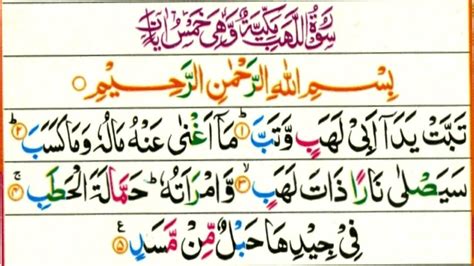 سُوْرَةُ اللَّهَبِ مَكِّيَّةٌ وَّهِىَ خَمْسُ اٰيَاتٍ
بِسْمِ اللهِ الرَّحْمٰنِ الرَّحِيْمِ
تَبَّتْ يَدَاۤ اَبِىْ لَهَبٍ وَّتَبَّ ۝۱ مَاۤ اَغْنٰى عَنْهُ مَالُهٗ وَمَا كَسَبَ ۝۲
سَيَصْلٰى نَارًا ذَاتَ لَهَبٍ ۝۳ وَّامْرَاَتُهٗ ؕ حَمَّالَةَ الْحَطَبِ ۝۴
فِىْ جِيْدِهَا حَبْلٌ مِّنْ مَّسَدٍ ۝۵ ع